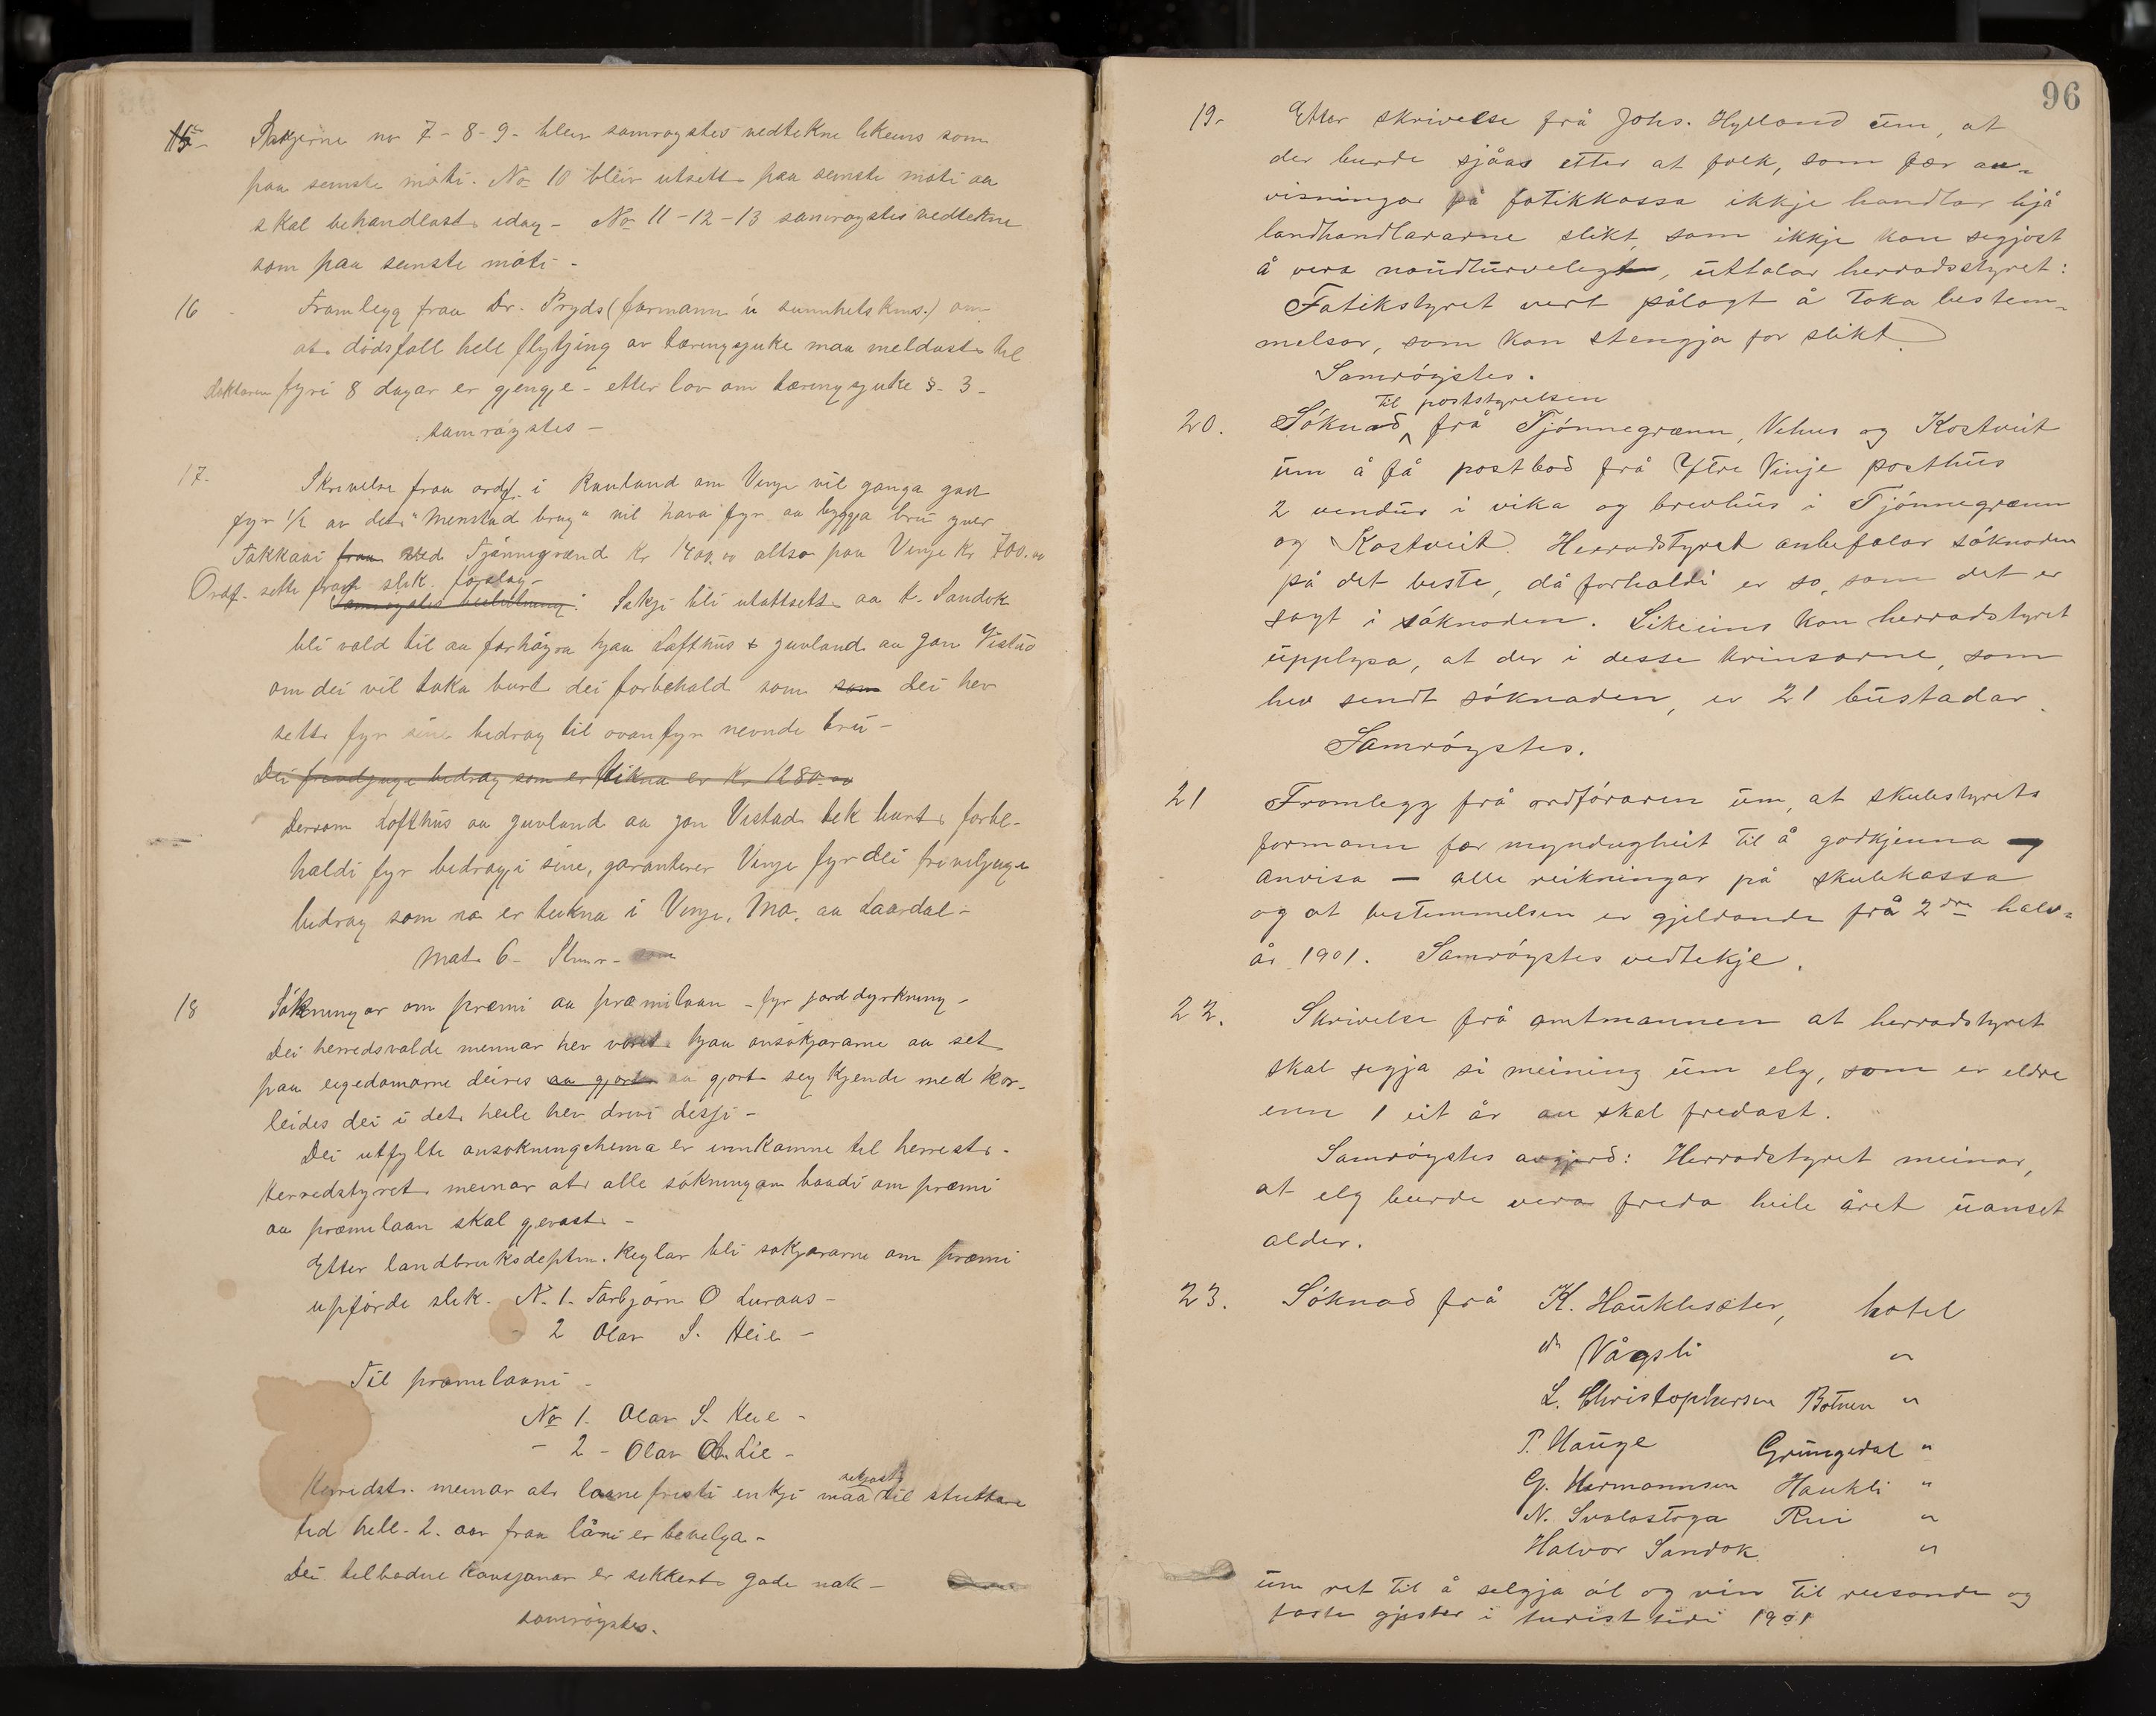 15- Sakjerne no 7-8-9- bleiv samrøystes vedtekne likeins som
paa semste møti. No 10 bleiv utsett paa semste møti aa
skal behandlast idag- No 11-12-13 samrøystes vedtekne
som paa semste møti-
16 Framlegg fraa Dr. Pryds (formann i sunnhetskms.) om
at dødsfall hell flytjing av tæringsjuke maa meldast til
doktaren fyri 8 dagar er gjengje- etter lov om tæringsjuke §- 3-
samrøystes-
17. Skrivelse fraa ordf. i Rauland om Vinje vil ganga god
fyr 1/2 av det "Menstad brug" vil hava fyr aa byggja bru yver
Takkaai fraa ved Tjønnegrænd Kr 1400.00 altso paa Vinje Kr 700.00
Ordf. sette fram slik forslag-
Samrøystes beslutning: Sakji bli utattsett aa H. Sandok
bli vald til aa forhøyra hjaa Lofthus & Juvland aa Jon Vistad
om dei vil taka burt dei forbehald som som dei hev
sett fyr sine bedrag til ovanfyr nevnde bru-
Dei friveljuge bedrag som er tikna er Kr 1280.00
Dersom Lofthus aa Juvland aa Jon Vistad tek burt forbe-
haldi fyr bedragji sine, garanterer Vinje fyr dei friveljuge
bedrag som no er tikna i Vinje, Mo, aa Laardal-
mot 6- Stemr-
18 Søkningar om præmi aa præmilaan - fyr jorddyrkning-
Dei herredsvalde mennar hev voret hjaa ansøkjararne aa set
paa eigedomarne deires aa gjort aa gjort seg kjende med kor-
leides dei i det heile hev drivi dessi-
Dei utfylte ansøkningschema er innkomne til herrest-
Herredstyret meinar at alle søkningan baadi om præmi
aa præmilaan skal gjevast-
Etter landbruksdeptm. Reglar bli søkjararne om præmi
upførde slik. N. 1. Tarbjørn O Luraas-
- 2 Olav S. Heie-
Til præmilaani-
No 1. Olav S. Heie-
- 2- Olav O. Lie-
Herredst. meinar at laanefristi enkji maa setjast til stuttare
tid hell- 2. aar fraa låni er bevilga-
Dei tilbodne kausjonar er sikkert gode nok-
samrøystes.
96
19. Etter skrivelse frå Johs. Hylland um, at
der burde sjåas etter at folk, som fær an-
visningar på fatikkassa ikkje handlar hjå
landhandlararne slikt, som ikkje kan segjast
å vera naudturvelegt, uttalar herradsstyret:
Fatikstyret vert pålagt å taka bestem-
melsar, som kan stengja for slikt
Samrøystes.
20. Søknad til poststyrelsen frå Tjønnegrænn, Vehus og Kostveit
um å få postbod frå Ytre Vinje posthus
2 vendur i vika og brevhus i Tjønnegrænn
og Kostveit. Herradstyret anbefalar søknaden
på det beste, då forholdi er so, som det er
sagt i søknaden. Likeeins kan herradstyret
upplysa, at der i desse krinsarne, som
hev sendt søknaden, er 21 bustadar.
Samrøystes.
21 Framlegg frå ordføraren um, at skulestyrets
formann fær myndugheit til å godkjenna og
anvisa — alle reikningar på skulekassa
og at bestemmelsen er gjeldande frå 2dre halv-
år 1901. Samrøystes vedtekje.
22. Skrivelse frå amtmannen at herradstyret
skal segja si meining um elg, som er eldre
enn 1 eit år au skal fredast.
Samrøystes avgjerd: Herradstyret meinar,
at elg burde vera freda heile året uanset
alder.
23. Søknad frå K. Haukliseter, hotel
do Vågsli "
L. Christophersen Botnen "
P. Hauge Grungedal "
G. Hermannsen Haukli "
N. Svalastoga Rui "
Halvor Sandok "
um ret til å selgja øl og vin til reisande og
faste gjester i turisttidi 1901